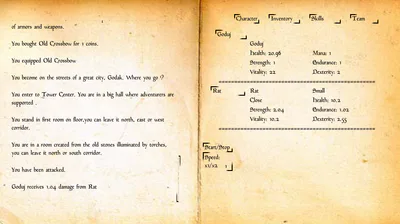 of armors and weapons.
You bought Old Crossbow for 1 coins.
You equipped Old Crossbow
You become on the streets of a great city, Godak. Where you go ?
You enter to Tower Center. You are in a big hall where adventurers are
supported .
You stand in first room on floor,you can leave it north, east or west
corridor.
You are in a room created from the old stones illuminated by torches,
you can leave it north or south corridor.
You have been attacked.
Godaj receives 1.04 damage from Rat
Character Inventory Skills Team
Godaj
Godaj
health: 20.96 Mana: 1
Strength: 1 Endurance: 1
Vitality: 22 Dexterity: 2
Rat Rat Small
Close health: 10.2
Strength: 2.04 Endurance: 1.02
Vitality: 10.2 Dexterity: 2.55
Start/Stop
Speed:
x1/x2 1